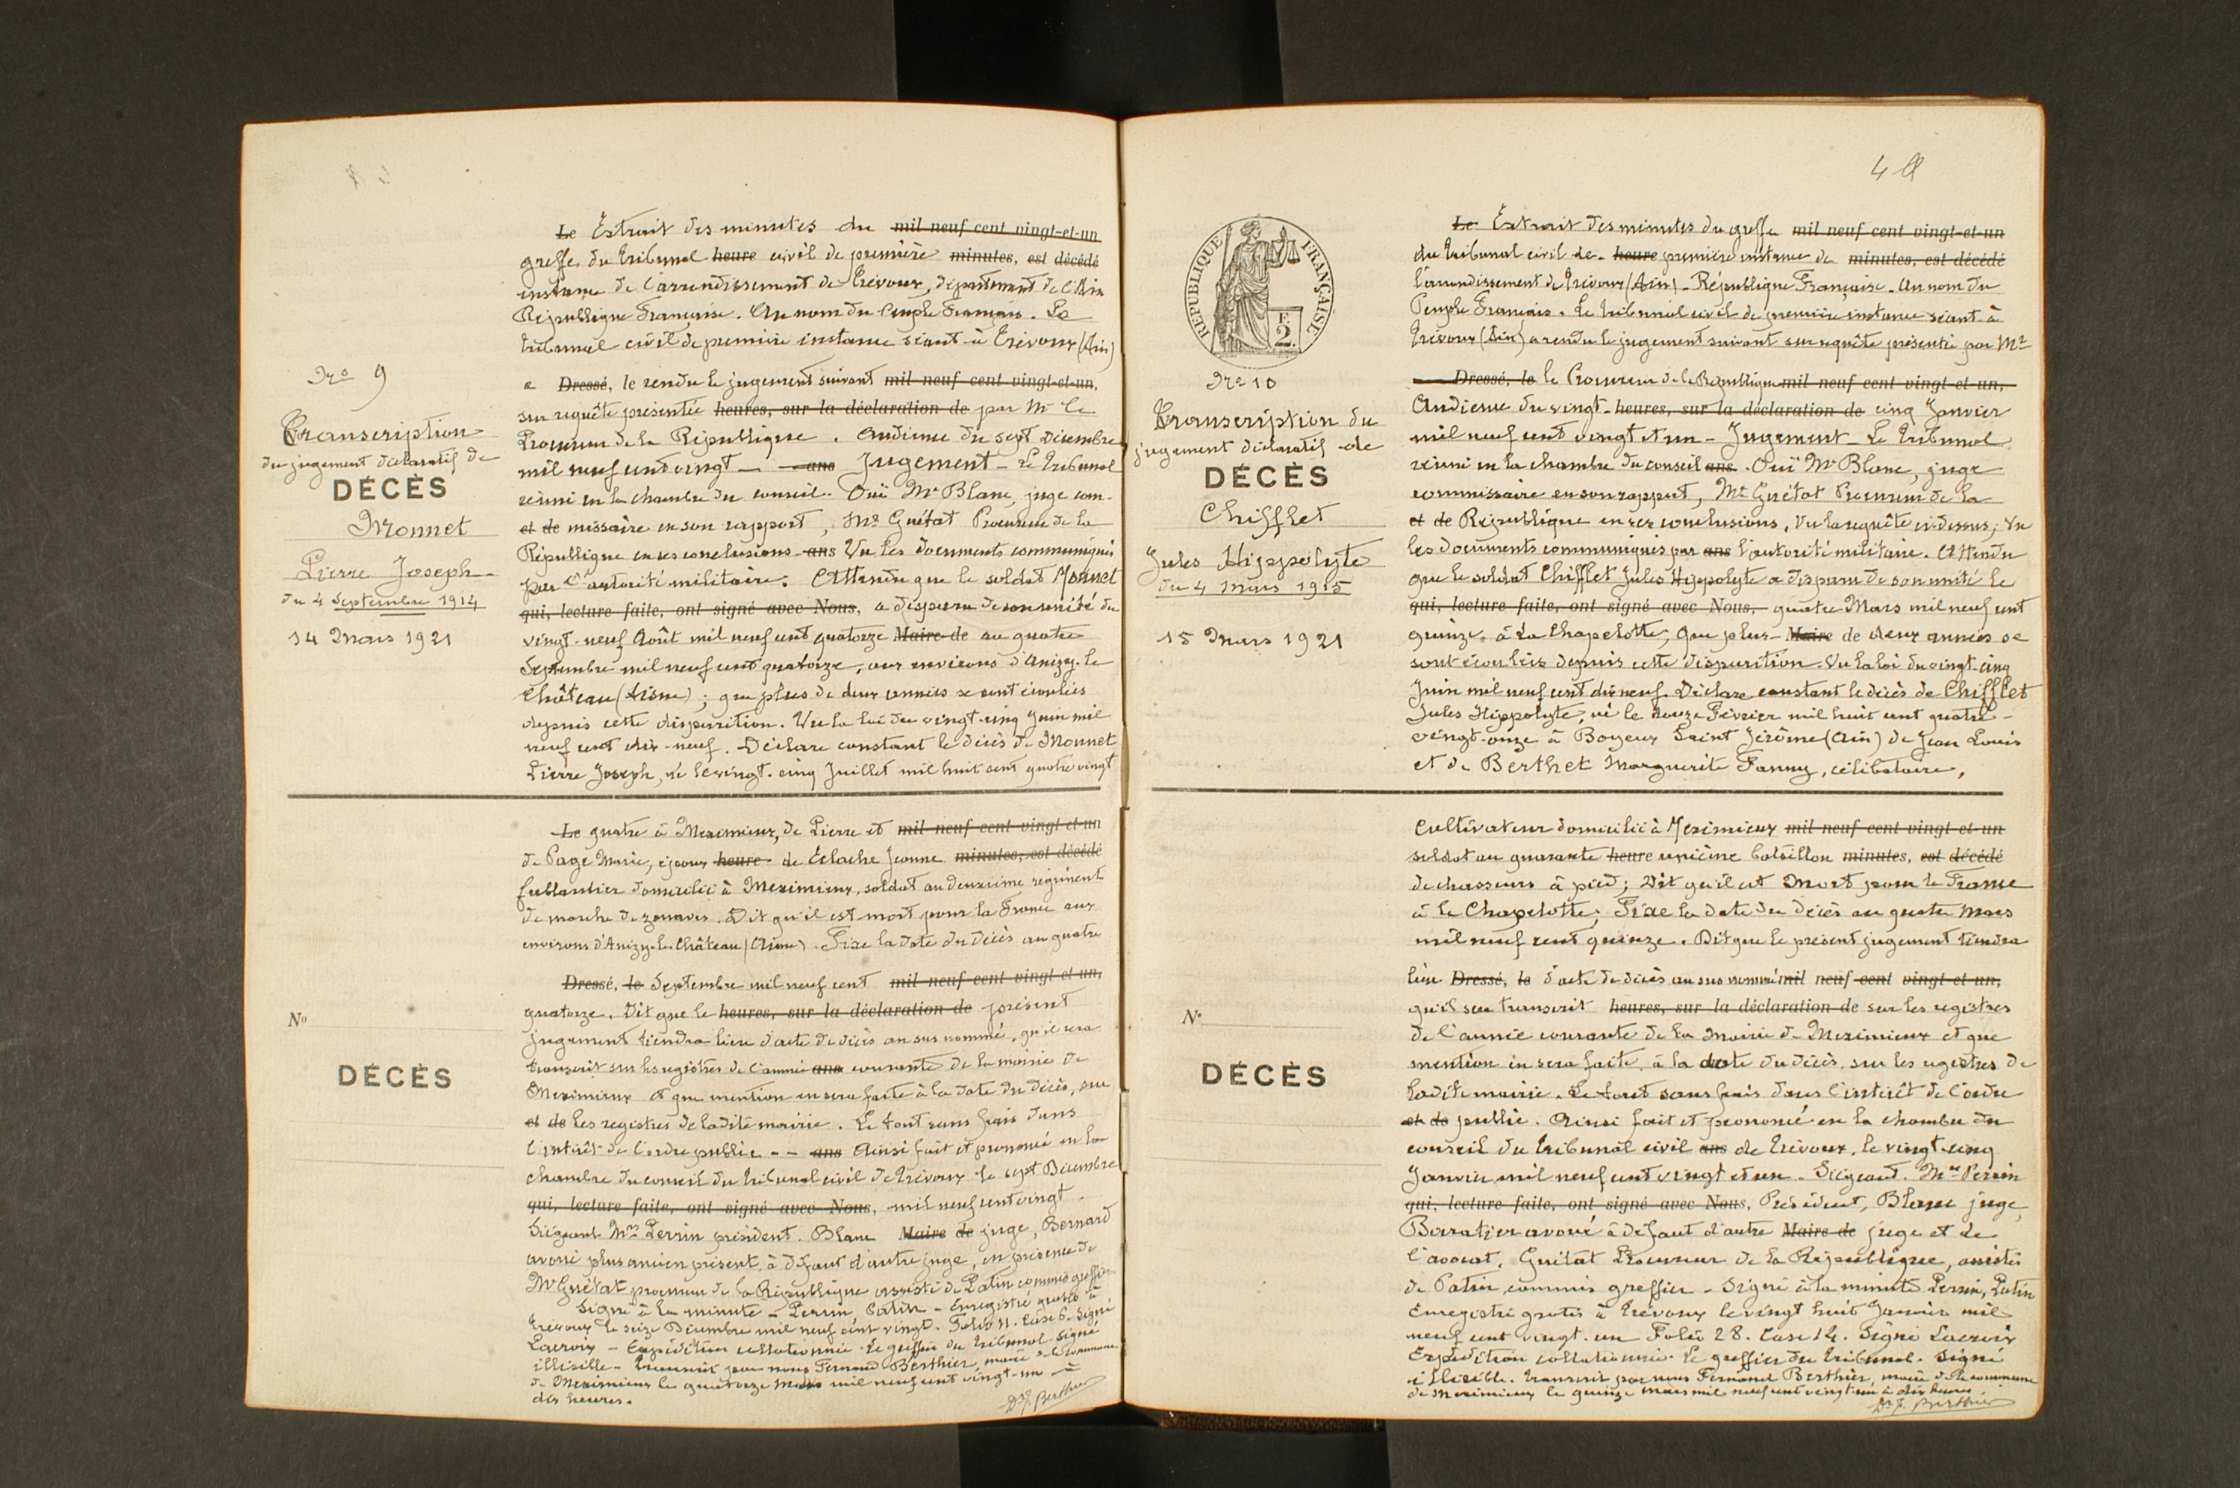 No 9
Transcription
du jugement déclaratif de
DÉCÈS
Monnet
Pierre Joseph
du 4 Septembre 1914
14 Mars 1921
Le Extrait des minutes du mil neuf cent vingt-et-un
greffe du tribunal heure civil de première minutes, est décédé
instance de l'arrondissement de Trévoux, département de l'Ain
République Française. Au nom du Peuple Français. Le
tribunal civil de première instance séant à Trévoux (Ain)
a Dressé, le rendu le jugement suivant mil neuf cent vingt-et-un,
sur requête présentée heures, sur la déclaration de par Mr le
Procureur de la République. Audience du sept Décembre
mil neuf cent vingt - ans Jugement - Le Tribunal
réuni en la chambre du conseil. Ouï Mr Blanc, juge com-
et de missaire en son rapport, Mr Guétat Procureur de la
République en ses conclusions ans Vu les documents communiqués
par l'autorité militaire. Attendu que le soldat Monnet
qui, lecture faite, ont signé avec Nous, a disparu de son unité du
vingt-neuf Août mil neuf cent quatorze Maire de au quatre
Septembre mil neuf cent quatorze, aux environs d'Anizy-le
Château (Aisne); que plus de deux années se sont écoulées
depuis cette disparition. Vu la loi du vingt-cinq Juin mil
neuf cent dix-neuf. Déclare constant le décès de Monnet
Pierre Joseph, né le vingt-cinq Juillet mil huit cent quatre vingt
Le quatre à Meximieux, de Pierre et mil neuf cent vingt-et-un
de Page Marie, époux heure de Eclache Jeanne minutes, est décédé
ferblantier domicilié à Meximieux, soldat au deuxième régiment
de marche de zouaves. Dit qu'il est mort pour la France aux
environs d'Anizy-le-Château (Aisne). Fixe la date du décès au quatre
Dressé, le Septembre mil neuf cent mil neuf cent vingt-et-un,
quatorze. Dit que le heures, sur la déclaration de présent
jugement tiendra lieu d'acte de décès au sus nommé, qu'il sera
transcrit sur les registres de l'année ans courante de la mairie de
Meximieux et que mention en sera faite à la date du décès, sur
et de les registres de ladite mairie. Le tout sans frais dans
l'intérêt de l'ordre public -- ans Ainsi fait et prononcé en la
chambre du conseil du tribunal civil de Trévoux le sept Décembre
qui, lecture faite, ont signé avec Nous, mil neuf cent vingt.
Siégeant Mrs Perrin président. Blanc Maire de juge, Bernard
avoué plus ancien présent, à défaut d'autre juge, en présence de
Mr Guétat procureur de la République assisté de Patin commis greffier
Signé à la minute - Perrin, Patin - Enregistré gratis à
Trévoux le seize Décembre mil neuf cent vingt. Folio 11. Case 6. Signé
Lacroix - Expédition collationnée. Le greffier du tribunal signé
illisible - Transcrit par nous Fernand Berthier, maire de la commune
de Meximieux le quatorze Mars mil neuf cent vingt-un à
dix heures.
Dr F. Berthier
No
DÉCÈS
RÉPUBLIQUE FRANÇAISE
F.
2.
No 10
Transcription du
jugement déclaratif de
DÉCÈS
Chifflet
Jules Hippolyte
du 4 Mars 1915
15 Mars 1921
Le Extrait des minutes du greffe mil neuf cent vingt-et-un
du tribunal civil de heure première instance de minutes, est décédé
l'arrondissement de Trévoux (Ain) - République Française. Au nom du
Peuple Français. Le tribunal civil de première instance séant à
Trévoux (Ain) a rendu le jugement suivant sur requête présentée par Mr
Dressé, le le Procureur de la République mil neuf cent vingt-et-un,
Audience du vingt- heures, sur la déclaration de cinq Janvier
mil neuf cent vingt et un - Jugement - Le Tribunal
réuni en la chambre du conseil ans. Ouï Mr Blanc, juge
commissaire en son rapport, Mr Guétat Procureur de la
et de République en ses conclusions. Vu la requête ci-dessus; Vu
les documents communiqués par ans l'autorité militaire. Attendu
que le soldat Chifflet Jules Hippolyte a disparu de son unité le
qui, lecture faite, ont signé avec Nous, quatre Mars mil neuf cent
quinze à la Chapelotte, que plus Maire de deux années se
sont écoulées depuis cette disparition. Vu la loi du vingt-cinq
Juin mil neuf cent dix neuf. Déclare constant le décès de Chifflet
Jules Hippolyte, né le douze Février mil huit cent quatre-
vingt-onze à Boyeux Saint Jérôme (Ain) de Jean Louis
et de Berthet Marguerite Fanny, célibataire,
Cultivateur domicilié à Meximieux mil neuf cent vingt-et-un
soldat au quarante heure unième bataillon minutes, est décédé
de chasseurs à pied; Dit qu'il est Mort pour la France
à la Chapelotte; Fixe la date du décès au quatre Mars
mil neuf cent quinze. Dit que le présent jugement tiendra
lieu Dressé, le d'acte de décès au sus nommé mil neuf cent vingt-et-un,
qu'il sera transcrit heures, sur la déclaration de sur les registres
de l'année courante de la mairie de Meximieux et que
mention en sera faite à la date du décès sur les registres de
ladite mairie. Le tout sans frais dans l'intérêt de l'ordre
et de public. Ainsi fait et prononcé en la chambre du
conseil du tribunal civil ans de Trévoux, le vingt-cinq
Janvier mil neuf cent vingt et un. Siégeant. Mrs Perrin
qui, lecture faite, ont signé avec Nous, Président, Blanc juge,
Barratier avoué à défaut d'autre Maire de juge et de
l'avocat, Guétat Procureur de la République, assistés
de Patin commis greffier - Signé à la minute Perrin, Patin
Enregistré gratis à Trévoux le vingt huit Janvier mil
neuf cent vingt-un Folio 28. Case 14. Signé Lacroix
Expédition collationnée. Le greffier du tribunal. Signé
illisible. Transcrit par nous Fernand Berthier, maire de la commune
de Meximieux le quinze mars mil neuf cent vingt-un à dix heures.
Dr F. Berthier
No
DÉCÈS